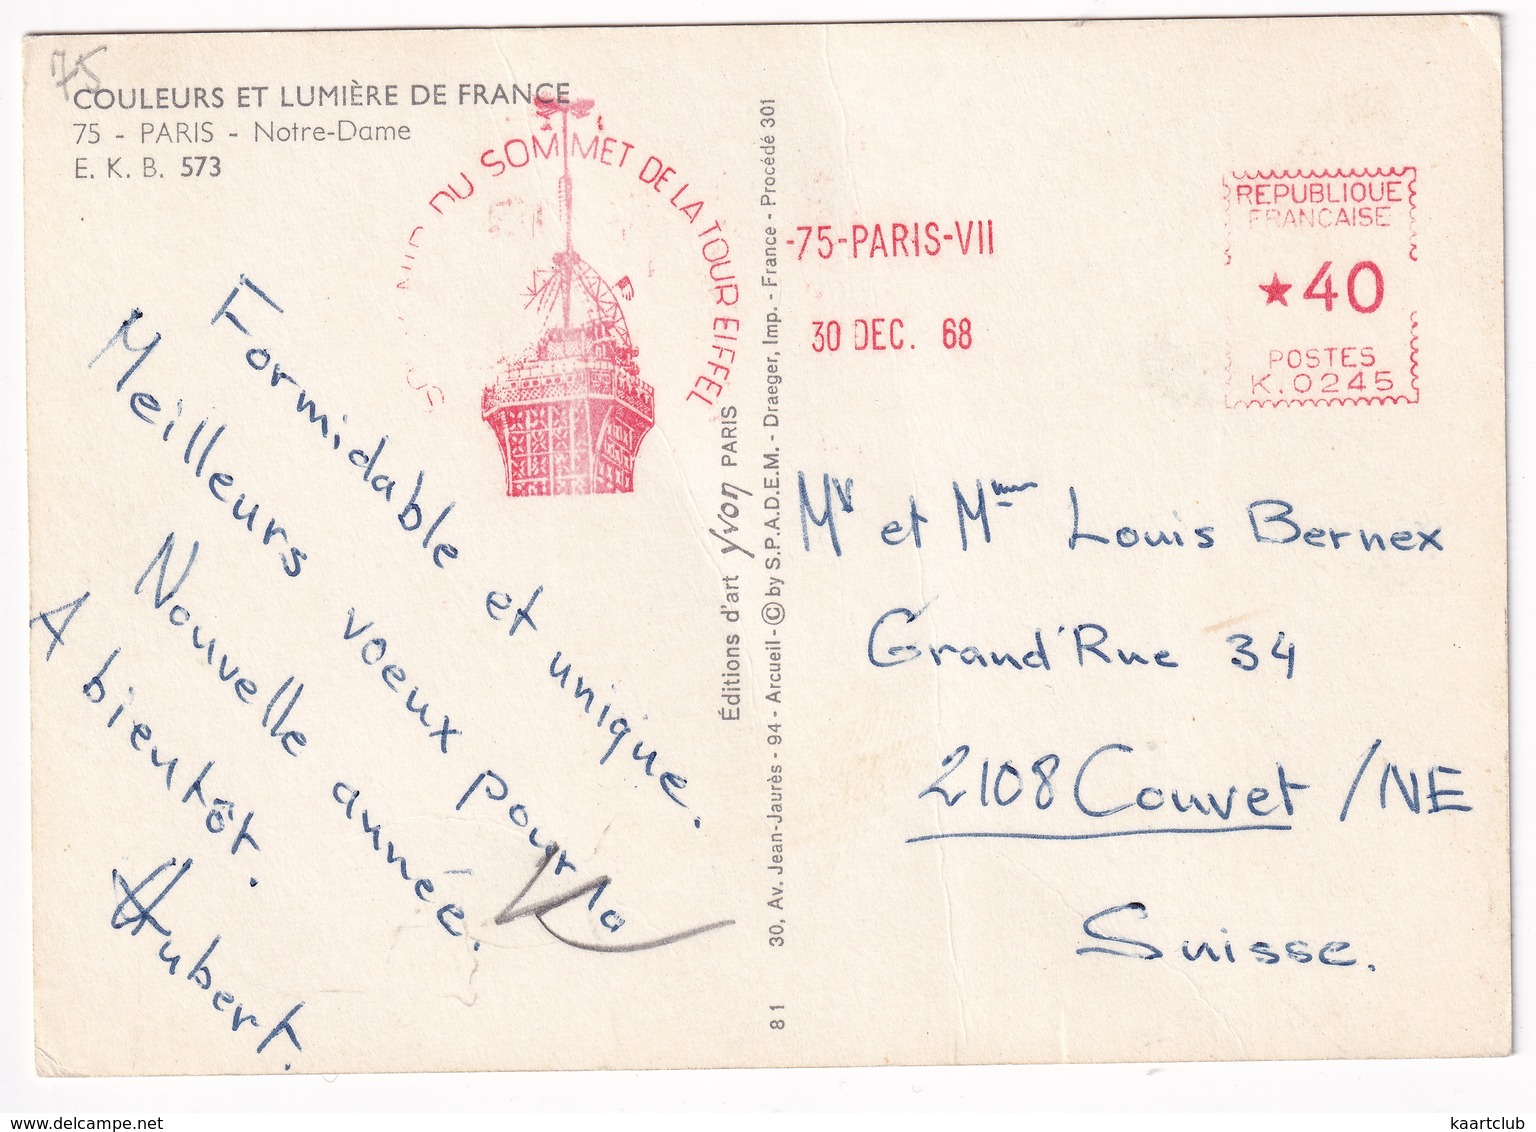 75
COULEURS ET LUMIÈRE DE FRANCE
75 - PARIS - Notre-Dame
E. K. B. 573
DU SOMMET DE LA TOUR EIFFEL
-75-PARIS-VII
30 DEC. 68
REPUBLIQUE
FRANCAISE
★40
POSTES
K.0245
Formidable et unique.
Meilleurs voeux pour la
Nouvelle année.
A bientôt.
Hubert.
Éditions d'art Yvon PARIS
30, Av. Jean-Jaurès - 94 - Arcueil - © by S.P.A.D.E.M. - Draeger, Imp. - France - Procédé 301
81
Mr et Mme Louis Bernex
Grand'Rue 34
2108 Couvet /NE
Suisse.
kaartclub